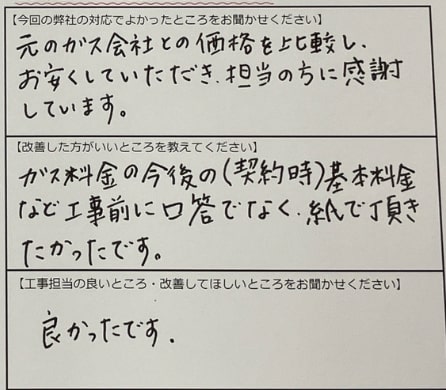 【今回の弊社の対応でよかったところをお聞かせください】
元のガス会社との価格を比較し、
お安くしていただき、担当の方に感謝
しています。
【改善した方がいいところを教えてください】
ガス料金の今後の(契約時)基本料金
など工事前に口答でなく、紙で頂き
たかったです。
【工事担当の良いところ・改善してほしいところをお聞かせください】
良かったです.